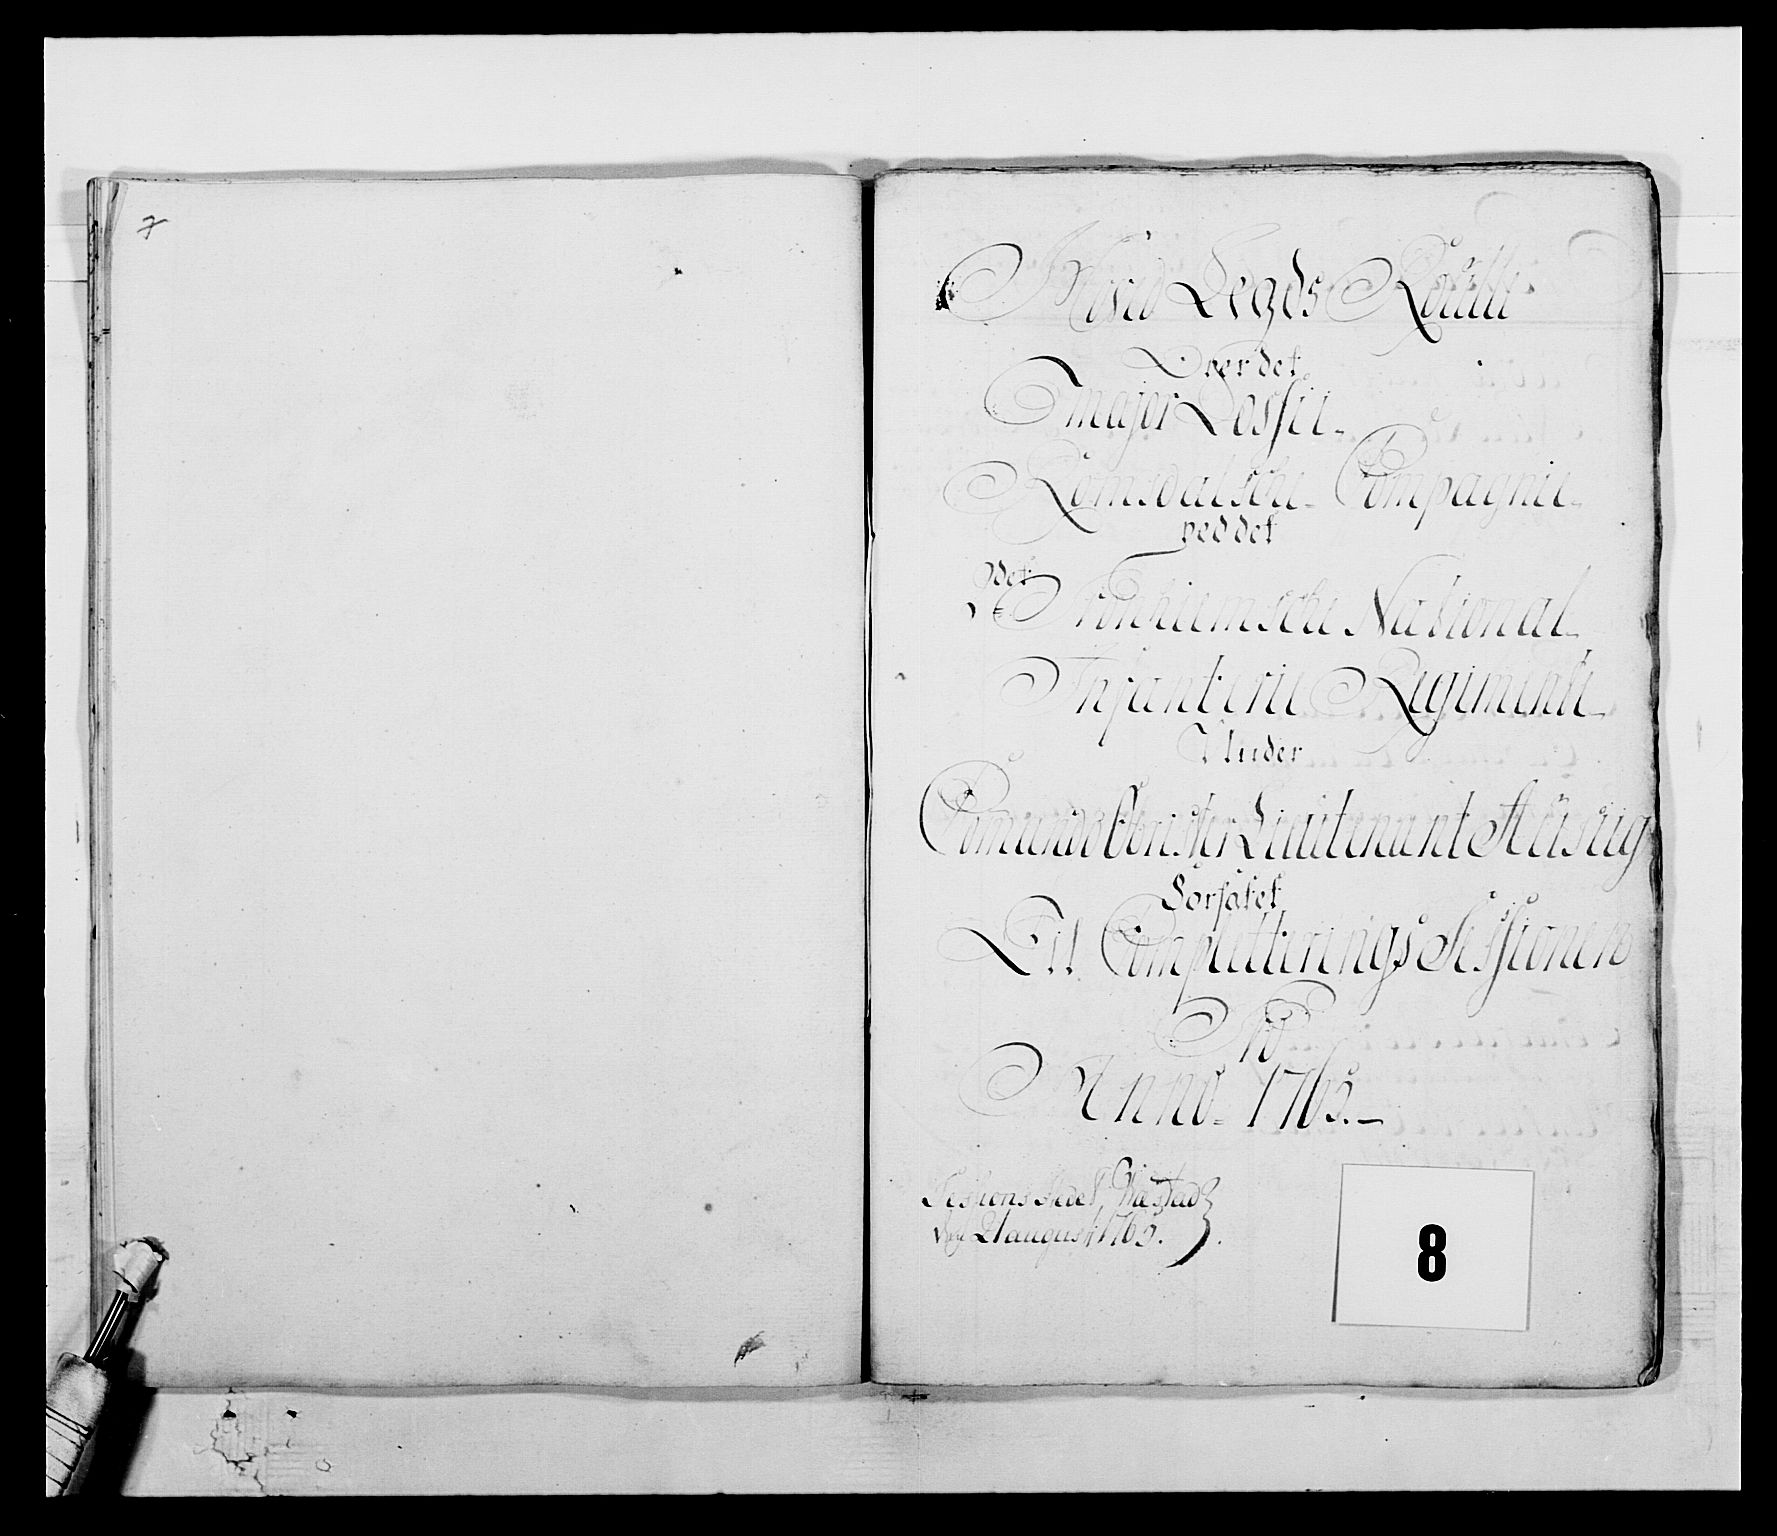 7
Hoved Legds Rulle
Over det
Major Dessii-
Romsdalsche- Compagnie-
ved det
2det Tronhiemsche National-
Infanterie Regimente-
Under
Comando Obrister Lieutenant
Forfatet
Til Completterings Sessionen
Anno- 1765.-
Sessions Stedet,
d 21 august 1765.
8